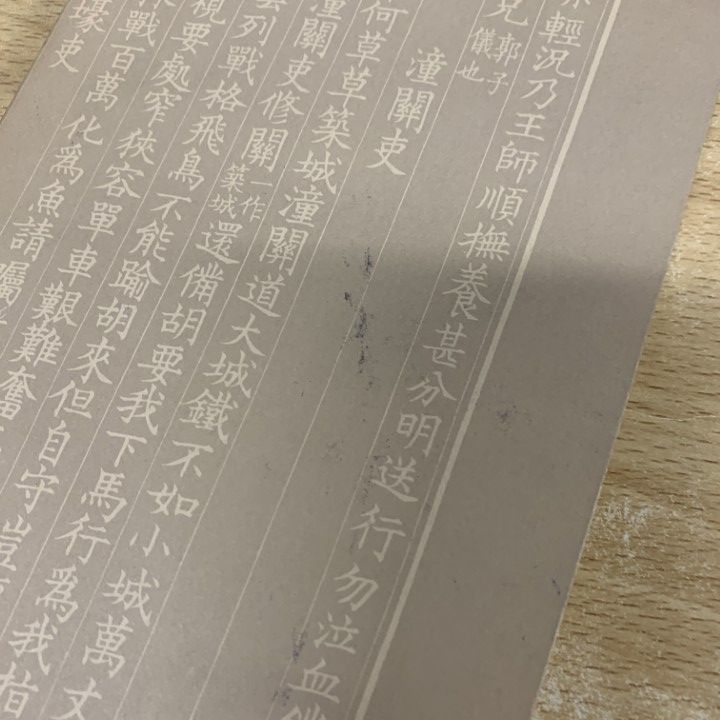 輕況乃王師順撫養甚分明送行勿泣血
兄郭子儀也
潼關吏
何草草築城潼關道大城鐵不如小城萬丈
潼關吏修關一作築城還備胡要我下馬行爲我指
列戰格飛鳥不能踰胡來但自守豈
視要處窄狹容單車艱難奮
戰百萬化爲魚請囑
壕吏